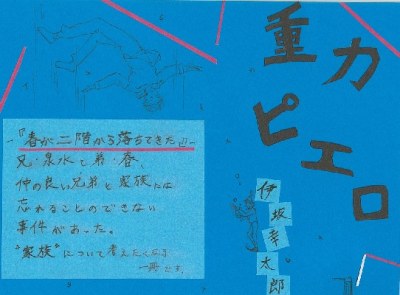 重力
ピエロ
伊坂幸太郎
『春が二階から落ちてきた。』
兄・泉水と弟・春、
仲の良い兄弟と家族には
忘れることのできない
事件があった。
"家族"について考え
一冊